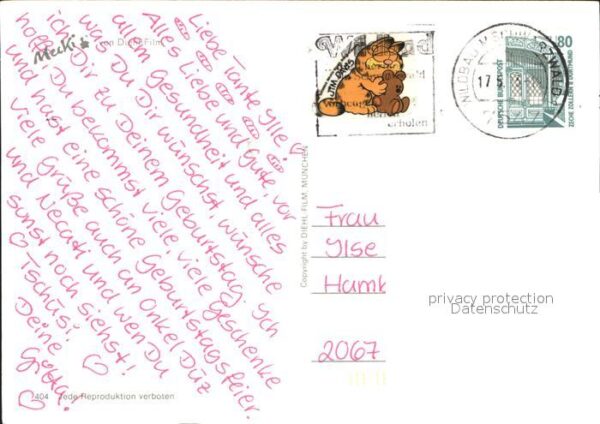 Liebe Tante Ylse!
Alles Liebe und Gute, vor
allem Gesundheit und alles
was Du Dir wünschst, wünsche
ich Dir zu Deinem Geburtstag. Ich
hoffe, Du bekommst viele Geschenke
und hast eine schöne Geburtstagsfeier.
Viele Grüße auch an Onkel Düz
und Necati und wen Du
sonst noch siehst!
Tschüs!
Deine
Gitta!
Mecki
von Diehl Film
404 Jede Reproduktion verboten
Copyright by DIEHL FILM, MÜNCHEN
Wildbad
erholen
WILDBAD I SCHWARZWALD
17
80
DEUTSCHE BUNDESPOST
ZECHE ZOLLERN II DORTMUND
Frau
Ylse
Hamk
2067
privacy protection
Datenschutz